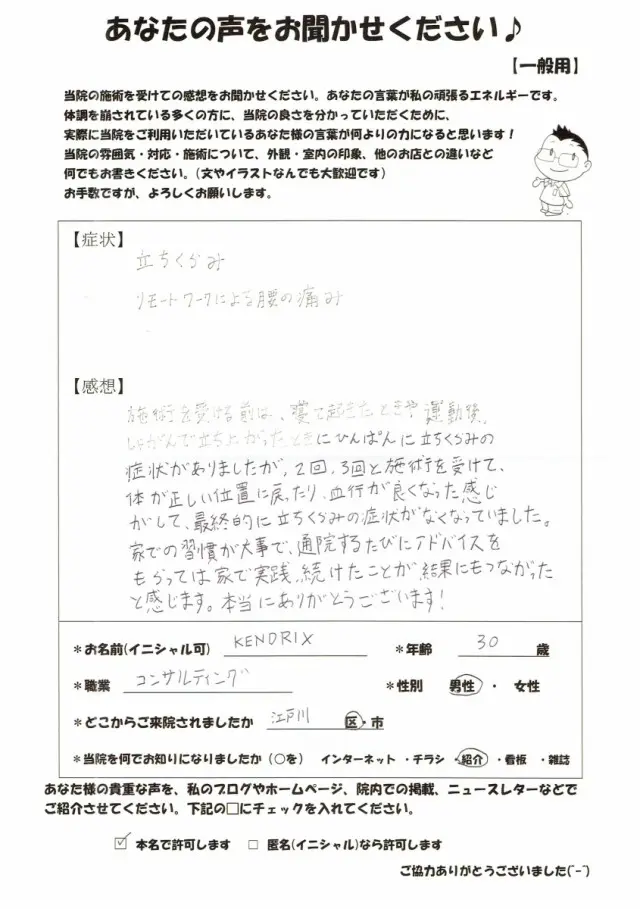 あなたの声をお聞かせください♪
【一般用】
当院の施術を受けての感想をお聞かせください。あなたの言葉が私の頑張るエネルギーです。
体調を崩されている多くの方に、当院の良さを分かっていただくために、
実際に当院をご利用いただいているあなた様の言葉が何よりの力になると思います!
当院の雰囲気・対応・施術について、外観・室内の印象、他のお店との違いなど
何でもお書きください。(文やイラストなんでも大歓迎です)
お手数ですが、よろしくお願いします。
【症状】
立ちくらみ
リモートワークによる腰の痛み
【感想】
施術を受ける前は、寝て起きたときや運動後、
しゃがんで立ち上がったときにひんぱんに立ちくらみの
症状がありましたが、2回、3回と施術を受けて、
体が正しい位置に戻ったり、血行が良くなった感じ
がして、最終的に立ちくらみの症状がなくなっていました。
家での習慣が大事で、通院するたびにアドバイスを
もらっては家で実践、続けたことが結果にもつながった
と感じます。本当にありがとうございます!
*お名前(イニシャル可) KENDRIX *年齢 30 歳
*職業 コンサルティング *性別 男性・女性
*どこからご来院されましたか 江戸川 区・市
*当院を何でお知りになりましたか(○を) インターネット・チラシ・紹介・看板・雑誌
あなた様の貴重な声を、私のブログやホームページ、院内での掲載、ニュースレターなどで
ご紹介させてください。下記の□にチェックを入れてください。
☑ 本名で許可します □ 匿名(イニシャル)なら許可します
ご協力ありがとうございました(^-^)